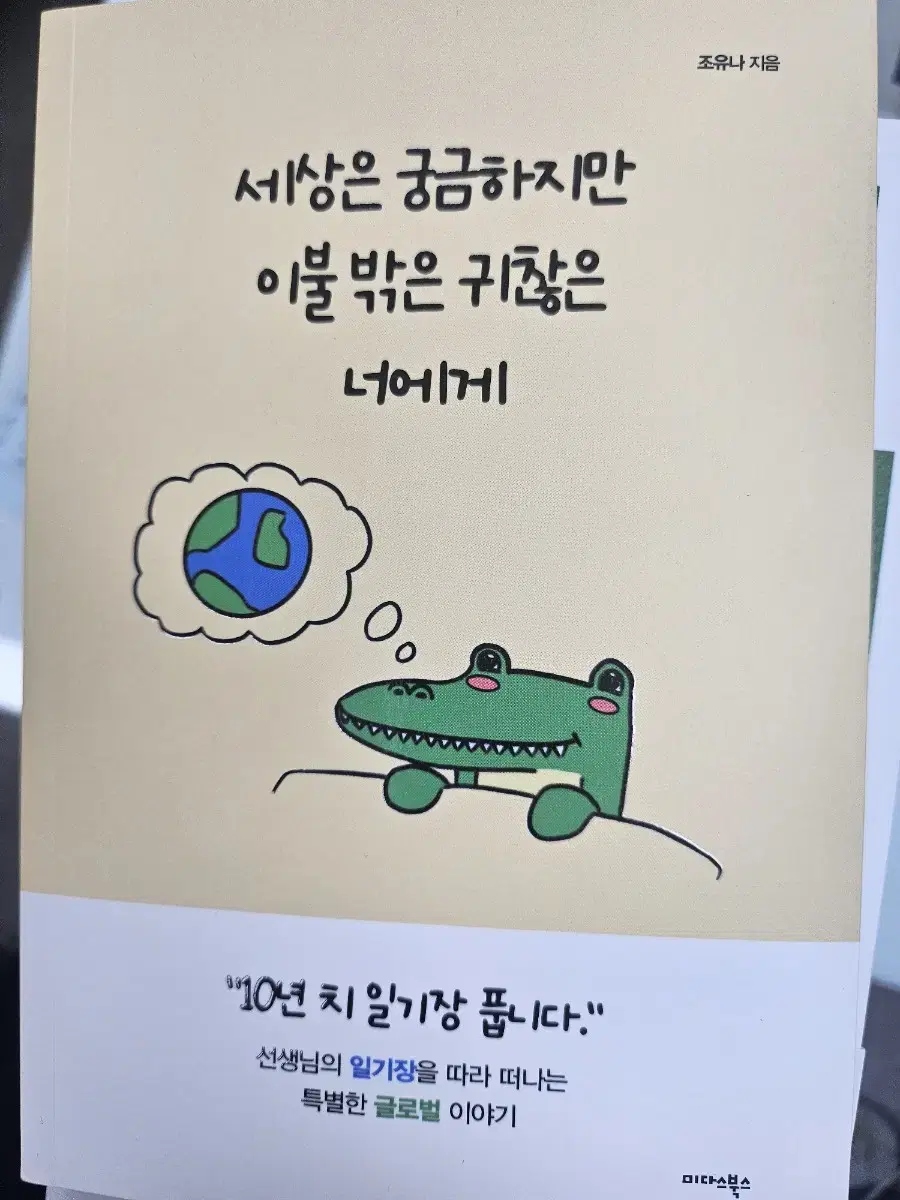 조유나 지음
세상은 궁금하지만
이불 밖은 귀찮은
너에게
"10년 치 일기장 풉니다."
선생님의 일기장을 따라 떠나는
특별한 글로벌 이야기
미다스북스